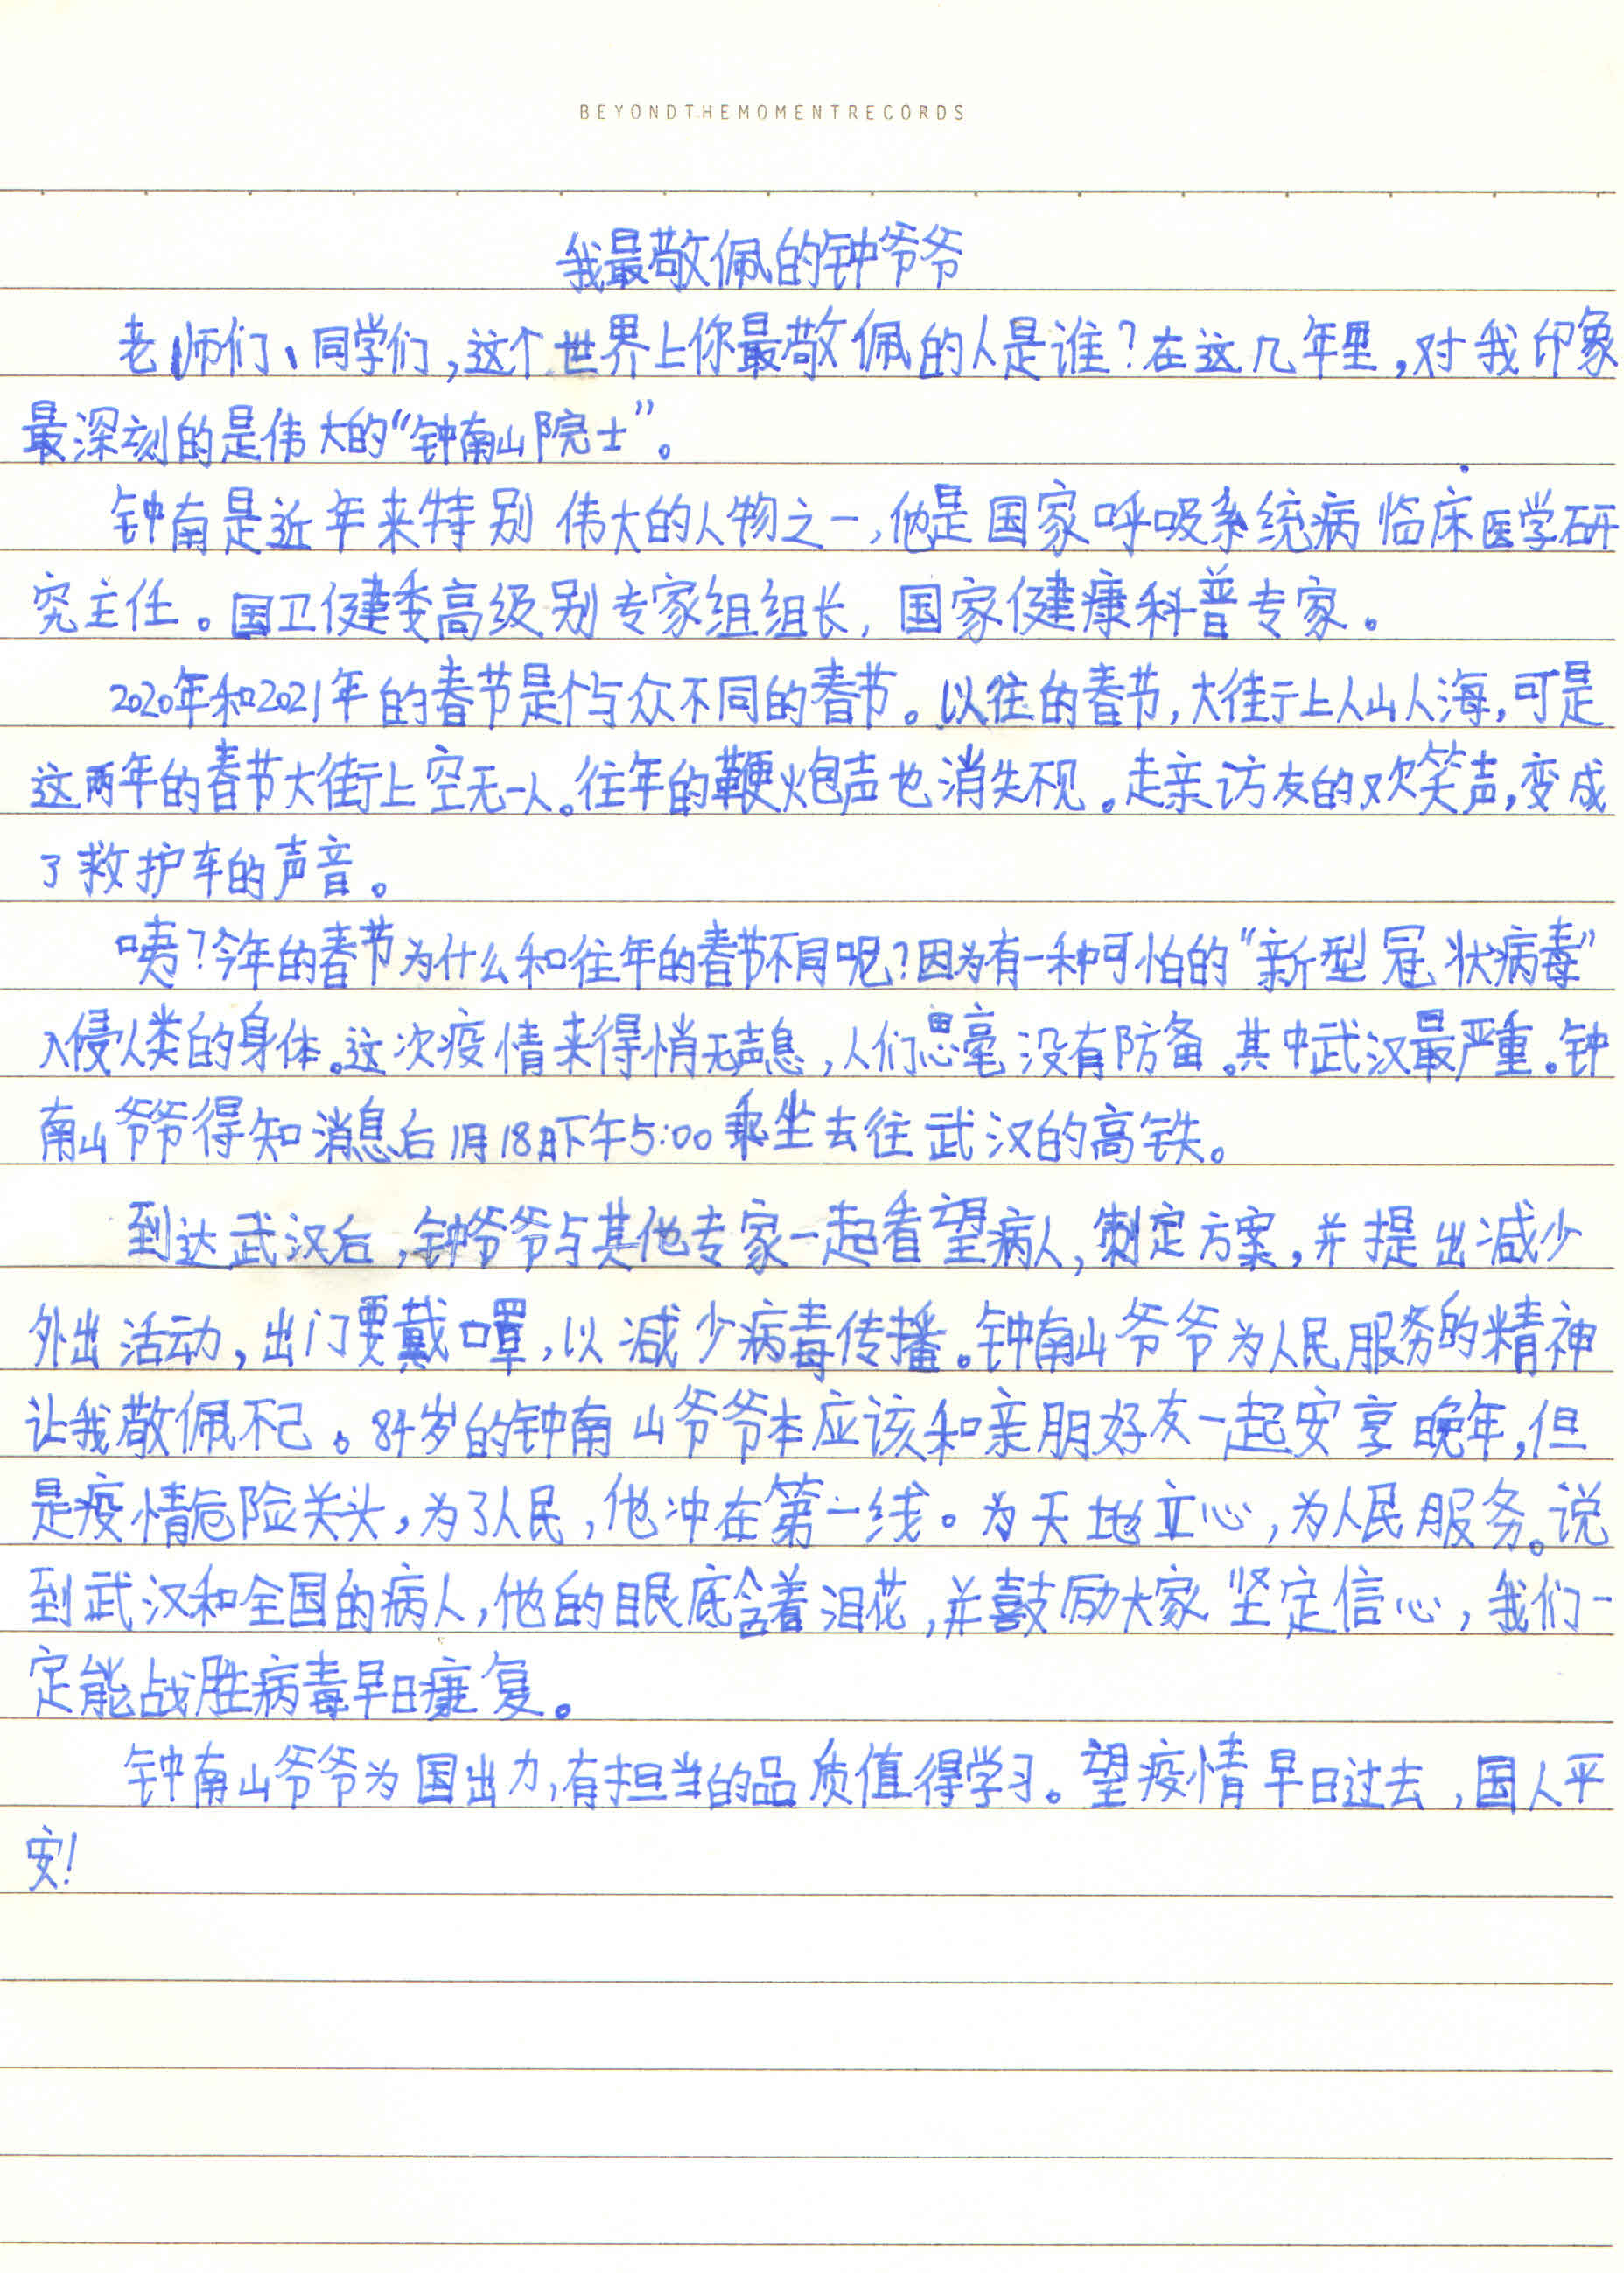 BEYONDTHEMOMENTRECORDS
我最敬佩的钟爷爷
老师们、同学们,这个世界上你最敬佩的人是谁?在这几年里,对我印象
最深刻的是伟大的“钟南山院士”。
钟南是近年来特别伟大的人物之一,他是国家呼吸系统病临床医学研
究主任。国卫健委高级别专家组组长,国家健康科普专家。
2020年和2021年的春节是个与众不同的春节。以往的春节,大街上人山人海,可是
这两年的春节大街上空无一人。往年的鞭炮声也消失不见。走亲访友的欢笑声,变成
了救护车的声音。
咦?今年的春节为什么和往年的春节不同呢?因为有一种可怕的“新型冠状病毒”
入侵人类的身体。这次疫情来得悄无声息,人们思毫没有防备。其中武汉最严重。钟
南山爷爷得知消息后1月18日下午5:00乘坐去往武汉的高铁。
到达武汉后,钟爷爷与其他专家一起看望病人,制定方案,并提出减少
外出活动,出门要戴口罩,以减少病毒传播。钟南山爷爷为人民服务的精神
让我敬佩不已。84岁的钟南山爷爷本应该和亲朋好友一起安享晚年,但
是疫情危险关头,为了人民,他冲在第一线。为天地立心,为人民服务。说
到武汉和全国的病人,他的眼底含着泪花,并鼓励大家坚定信心,我们一
定能战胜病毒早日康复。
钟南山爷爷为国出力,有担当的品质值得学习。望疫情早日过去,国人平
安!